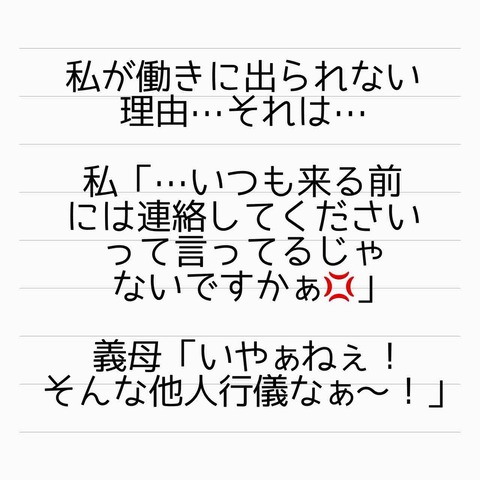 私が働きに出られない
理由…それは…
私「…いつも来る前
には連絡してください
って言ってるじゃ
ないですかぁ💢」
義母「いやぁねぇ！
そんな他人行儀なぁ〜！」